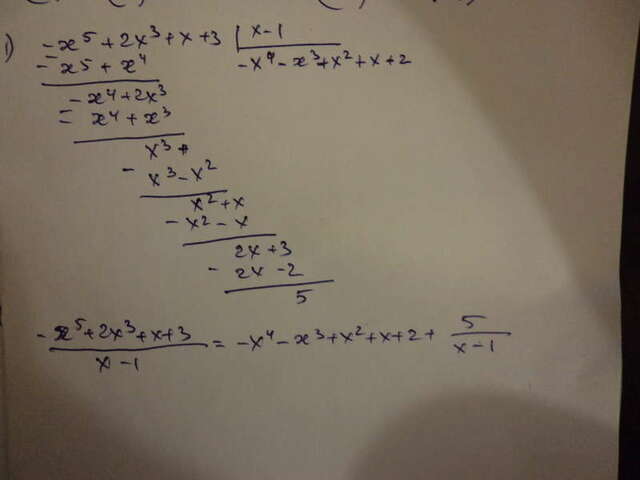 1) -x⁵ + 2x³ + x + 3 | x - 1
- -x⁵ + x⁴ -x⁴ - x³ + x² + x + 2
-x⁴ + 2x³
- -x⁴ + x³
x³ +
- x³ - x²
x² + x
- x² - x
2x + 3
- 2x - 2
5
-x⁵ + 2x³ + x + 3 / x - 1 = -x⁴ - x³ + x² + x + 2 + 5 / x - 1